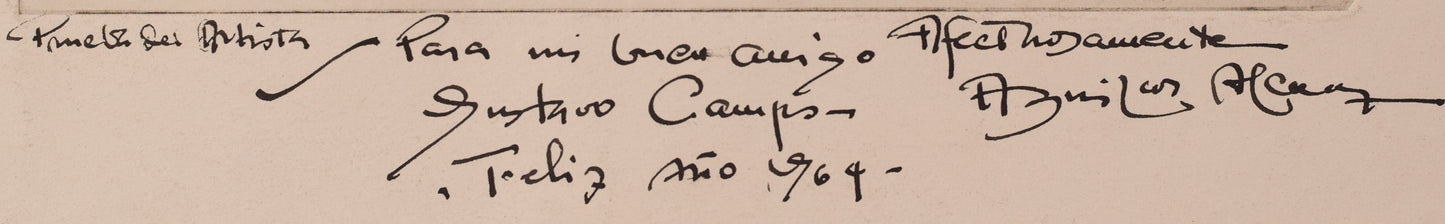 Prueba del Artista
Para mi buen amigo
Gustavo Camps-
Feliz Año 964-
Afectuosamente
Aguilar Alcuaz